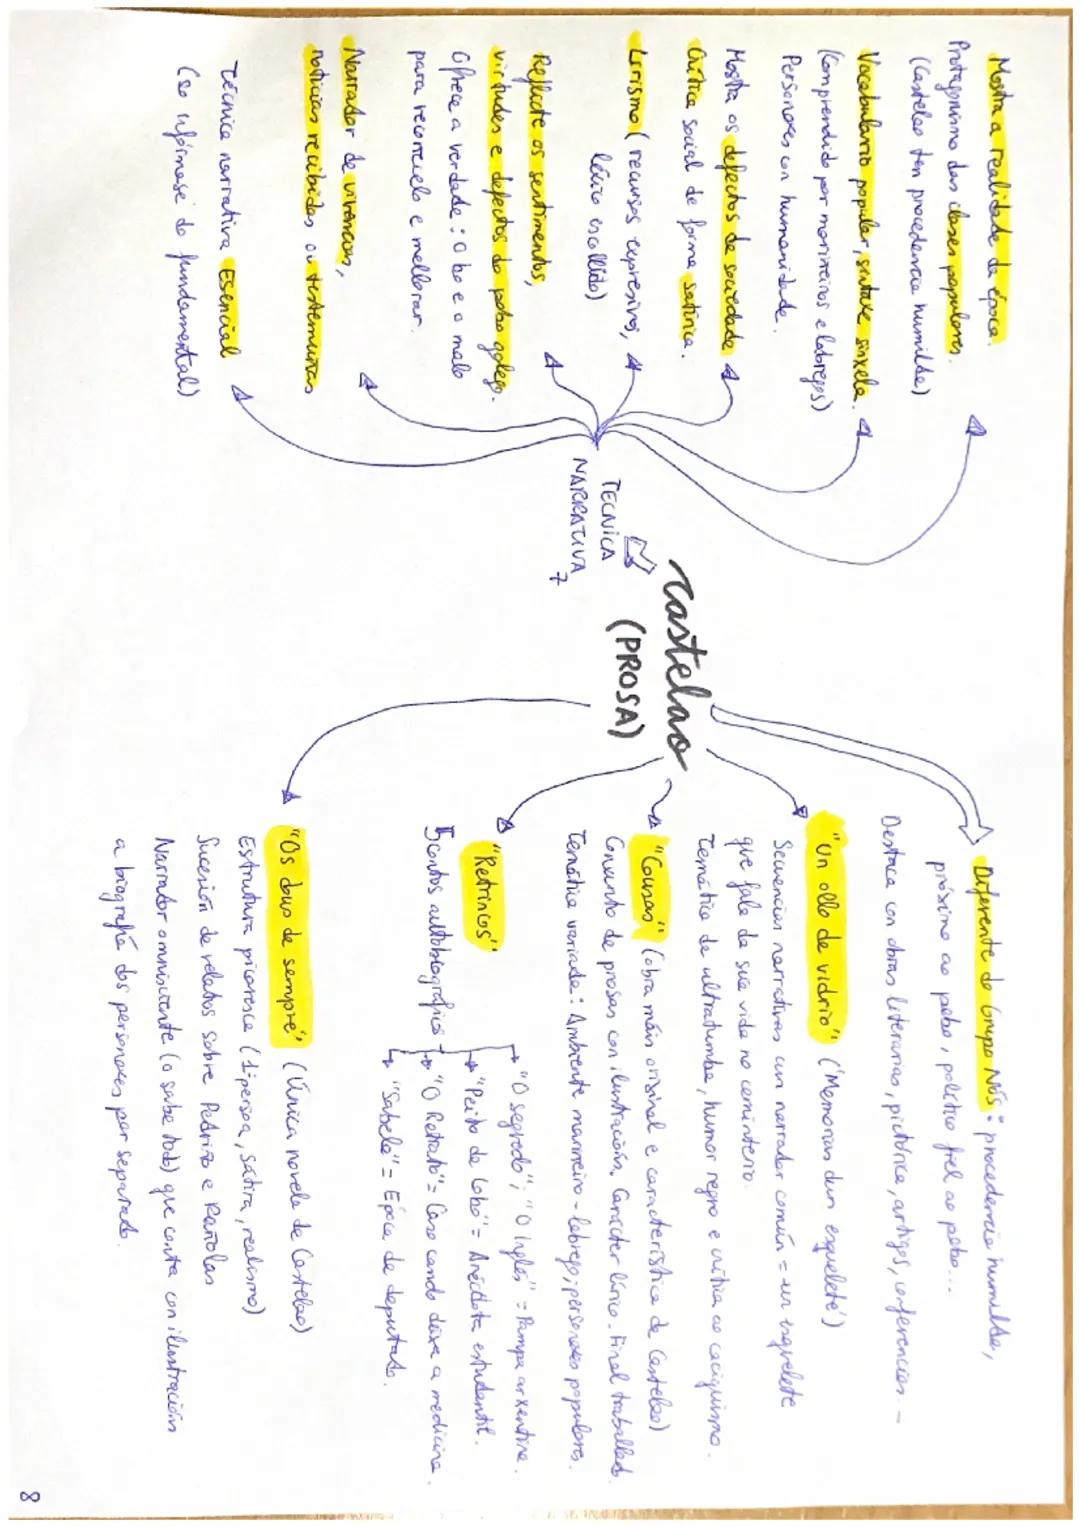 Castelao
(PROSA)
TECNICA
NARRATIVA
Mostra a realidade da época.
Protagonismo das clases populares.
(Castelao ten procedencia humilde)
Vocabulario popular, sintaxe sinxela.
(Comprendido por mariñeiros e labregos)
Personaxes con humanidade.
Mostra os defectos da sociedade
Crítica social de forma satírica.
Lirismo (recursos expresivos,
léxico escollido)
Reflicte os sentimentos,
virtudes e defectos do pobo galego.
Ofrece a verdade: O bo e o malo
para recoñecelo e mellorar.
Narrador de vivencias,
noticias recibidas ou testemuñas
Técnica narrativa Esencial
(so infórmase do fundamental)
Diferente do Grupo Nós: procedencia humilde,
próximo ao pobo, político fiel ao pobo...
Destaca con obras literarias, pictórica, artigos, conferencias. -
"Un ollo de vidrio" ('Memorias dun esquelete')
Secuencias narrativas cun narrador común = un esquelete
que fala da súa vida no cemiterio.
Temática de ultratumba, humor negro e crítica ao caciquismo.
"Cousas" (obra máis orixinal e característica de Castelao)
Conxunto de prosas con ilustracións. Carácter lírico. Final traballado.
Temática variada: Ambiente mariñeiro - labrego; personaxes populares.
"Retrincos"
5 contos autobiográficos
"O segredo"; "O inglés" = Pampa arxentina.
"Peito de lobo" = Anécdota estudantil.
"O Retrato" = Caso cando deixa a medicina.
"Sabela" = Época de deputado.
"Os dous de sempre" (Única novela de Castelao)
Estrutura picaresca (1ª persoa, sátira, realismo)
Sucesión de relatos sobre Pedriño e Rañolas
Narrador omnisciente (o sabe todo) que conta con ilustracións
a biografía dos personaxes por separado.
8